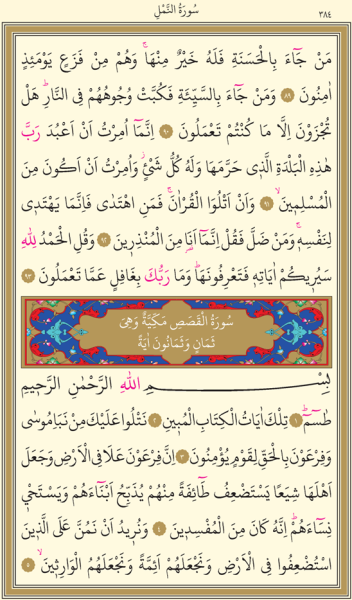 سُورَةُ النَّمْلِ
٣٨٤
مَنْ جَٓاءَ بِالْحَسَنَةِ فَلَهُ خَيْرٌ مِنْهَاۚ وَهُمْ مِنْ فَزَعٍ يَوْمَئِذٍ
اٰمِنُونَ ﴿٨٩﴾ وَمَنْ جَٓاءَ بِالسَّيِّئَةِ فَكُبَّتْ وُجُوهُهُمْ فِي النَّارِۜ هَلْ
تُجْزَوْنَ اِلَّا مَا كُنْتُمْ تَعْمَلُونَ ﴿٩٠﴾ اِنَّمَٓا اُمِرْتُ اَنْ اَعْبُدَ رَبَّ
هٰذِهِ الْبَلْدَةِ الَّذ۪ي حَرَّمَهَا وَلَهُ كُلُّ شَيْءٍۘ وَاُمِرْتُ اَنْ اَكُونَ مِنَ
الْمُسْلِم۪ينَۙ ﴿٩١﴾ وَاَنْ اَتْلُوَا الْقُرْاٰنَۚ فَمَنِ اهْتَدٰى فَاِنَّمَا يَهْتَد۪ي
لِنَفْسِه۪ۚ وَمَنْ ضَلَّ فَقُلْ اِنَّمَٓا اَنَا۬ مِنَ الْمُنْذِر۪ينَ ﴿٩٢﴾ وَقُلِ الْحَمْدُ لِلّٰهِ
سَيُر۪يكُمْ اٰيَاتِه۪ فَتَعْرِفُونَهَاۜ وَمَا رَبُّكَ بِغَافِلٍ عَمَّا تَعْمَلُونَ ﴿٩٣﴾
سُورَةُ الْقَصَصِ مَكِّيَّةٌ وَهِيَ
ثَمَانٍ وَثَمَانُونَ اٰيَةً
بِسْمِ اللّٰهِ الرَّحْمٰنِ الرَّح۪يمِ
طٰسٓمٓۜ ﴿١﴾ تِلْكَ اٰيَاتُ الْكِتَابِ الْمُب۪ينِ ﴿٢﴾ نَتْلُوا عَلَيْكَ مِنْ نَبَأِ مُوسٰى
وَفِرْعَوْنَ بِالْحَقِّ لِقَوْمٍ يُؤْمِنُونَ ﴿٣﴾ اِنَّ فِرْعَوْنَ عَلَا فِي الْاَرْضِ وَجَعَلَ
اَهْلَهَا شِيَعًا يَسْتَضْعِفُ طَٓائِفَةً مِنْهُمْ يُذَبِّحُ اَبْنَٓاءَهُمْ وَيَسْتَحْي۪
نِسَٓاءَهُمْۜ اِنَّهُ كَانَ مِنَ الْمُفْسِد۪ينَ ﴿٤﴾ وَنُر۪يدُ اَنْ نَمُنَّ عَلَى الَّذ۪ينَ
اسْتُضْعِفُوا فِي الْاَرْضِ وَنَجْعَلَهُمْ اَئِمَّةً وَنَجْعَلَهُمُ الْوَارِث۪ينَۙ ﴿٥﴾